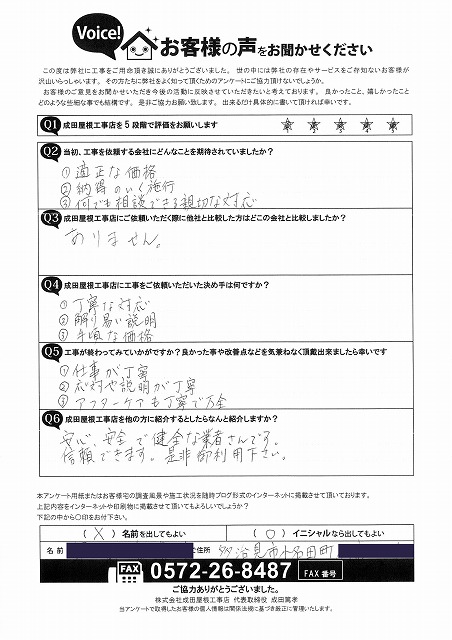 Voice!
お客様の声をお聞かせください
この度は弊社に工事をご用命頂き誠にありがとうございました。世の中には弊社の存在やサービスをご存知ないお客様が
沢山いらっしゃいます。その方たちに弊社をよく知って頂くためのアンケートにご協力頂けないでしょうか。
お客様のご意見をお聞かせいただき今後の活動に反映させていただきたいと考えております。良かったこと、嬉しかったこと
どのような些細な事でも結構です。是非ご協力お願い致します。出来るだけ具体的に書いて頂ければ幸いです。
Q1 成田屋根工事店を5段階で評価をお願いします ★ ★ ★ ★ ★
Q2 当初、工事を依頼する会社にどんなことを期待されていましたか?
①適正な価格
②納得のいく施行
③何でも相談できる親切な対応
Q3 成田屋根工事店にご依頼いただく際に他社と比較した方はどこの会社と比較しましたか?
ありません。
Q4 成田屋根工事店に工事をご依頼いただいた決め手は何ですか?
①丁寧な対応
②解り易い説明
③手頃な価格
Q5 工事が終わってみていかがですか?良かった事や改善点などを気兼ねなく頂戴出来ましたら幸いです
①仕事が丁寧
②応対や説明が丁寧
③アフターケアも丁寧で万全
Q6 成田屋根工事店を他の方に紹介するとしたらなんと紹介しますか?
安心、安全で健全な業者さんです。
信頼できます。是非御利用下さい。
本アンケート用紙またはお客様宅の調査風景や施工状況を随時ブログ形式のインターネットに掲載させて頂いております。
上記内容をインターネットや印刷物に掲載させて頂いてもよろしいでしょうか?
下記の中から〇印をお付下さい。
( X ) 名前を出してもよい ( O ) イニシャルなら出してもよい
名前 ご住所 多治見市小名田町
FAX 0572-26-8487 FAX番号
ご協力ありがとうございました。
株式会社成田屋根工事店 代表取締役 成田篤孝
当アンケートで取得したお客様の個人情報は関係法規に基づき厳正に管理いたします。